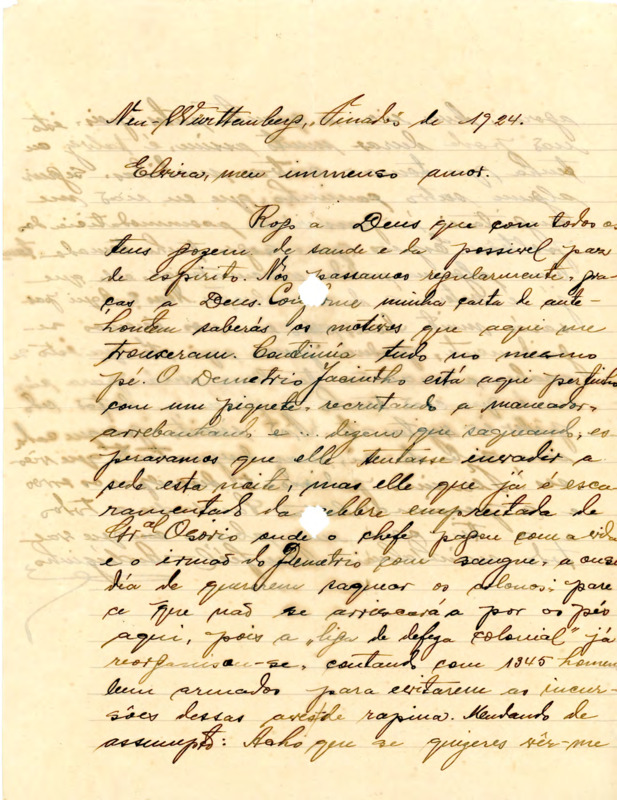 Neu-Württemberg, Finados de 1924.
Elvira, meu immenso amor.
Rogo a Deus que com todos os
teus gozem de saude e da possivel paz
de espirito. Nós passamos regularmente, gra-
ças a Deus. Conforme minha carta de ante-
hontem saberás os motivos que aqui me
trouxeram. Continúa tudo no mesmo
pé. O Demetrio Jacintho está aqui pertinho
com um piquete, recrutando a maneador,
arrebanhando e ... dizem que saqueando; es
peravamos que elle tentasse invadir a
sede esta noite, mas elle que já é esca
ramentado da celebre empreitada de
Gral Osório onde o chefe pagou com a vida
e o irmão do Demetrio com sangue, a ousa
dia de quererem saquear os colonos; pare
ce que não se arriscará a por os pés
aqui, pois a "liga de defeza colonial" já
reorganisou-se, contando com 1345 homens
bem armados para evitarem as incur-
sões dessas aves de rapina. Mudando de
assumpto: Acho que se quizeres vêr-me